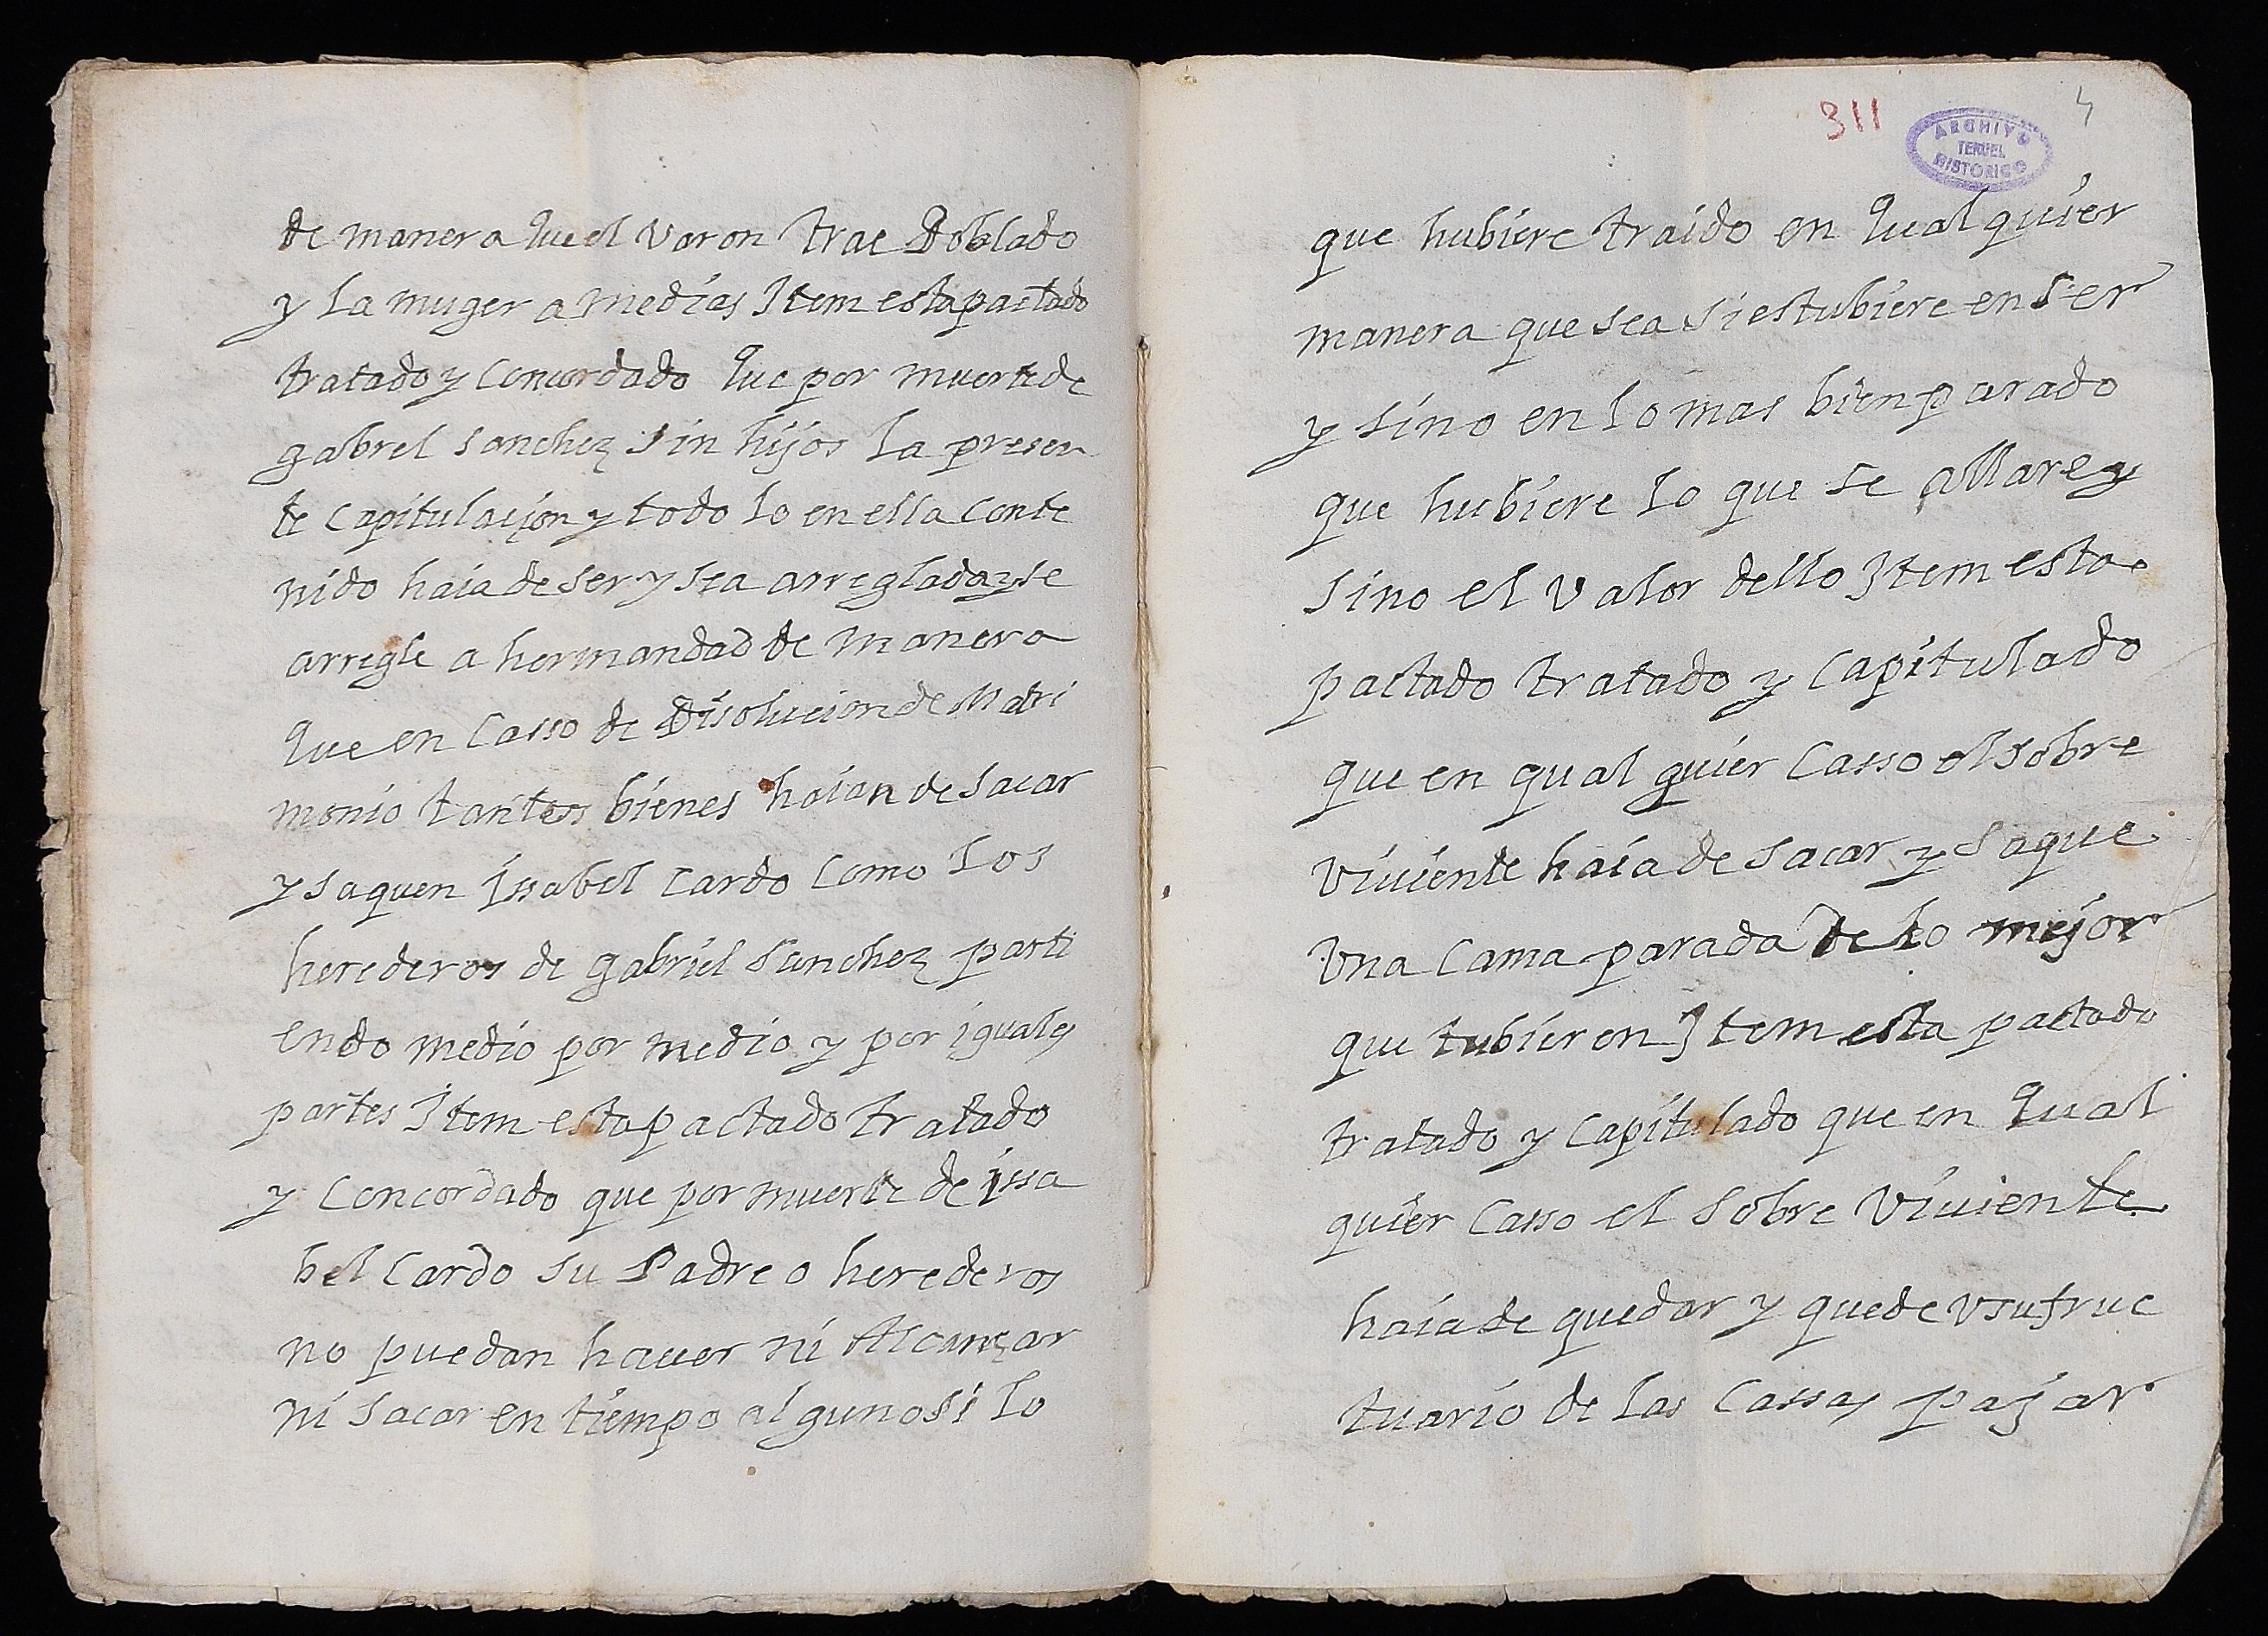 de manera que el varon trae Doblado
y la muger a medias Item esta pactado
tratado y Concordado que por muerte de
gabrel sanchez sin hijos la presen
te Capitulaçion y todo lo en ella Conte
nido haia de ser y sea arreglada y se
arregle a hermandad de manera
que en Casso de Disolucion de Matri
monio tantos bienes haian de sacar
y saquen issabel Cardo Como los
herederos de gabriel Sanchez parti
endo medio por medio y por iguales
partes Item esta pactado tratado
y Concordado que por muerte de issa
bel Cardo su Padre o herederos
no puedan hauer ni Alcançar
ni sacar en tiempo alguno si lo
311
4
ARCHIVO
TERUEL
HISTORICO
que hubiere traido en qualquier
manera que sea si estubiere en ser
y sino en lo mas bien parado
que hubiere lo que se allare y
sino el valor dello Item esta
pactado tratado y Capitulado
que en qual quier Casso el sobre
viuiente haia de sacar y saque
una Cama parada de lo mejor
que tubieren Item esta pactado
tratado y Capitulado que en qual
quier Casso el sobre viuiente
haia de quedar y quede usufruc
tuario de las Cassas pajar